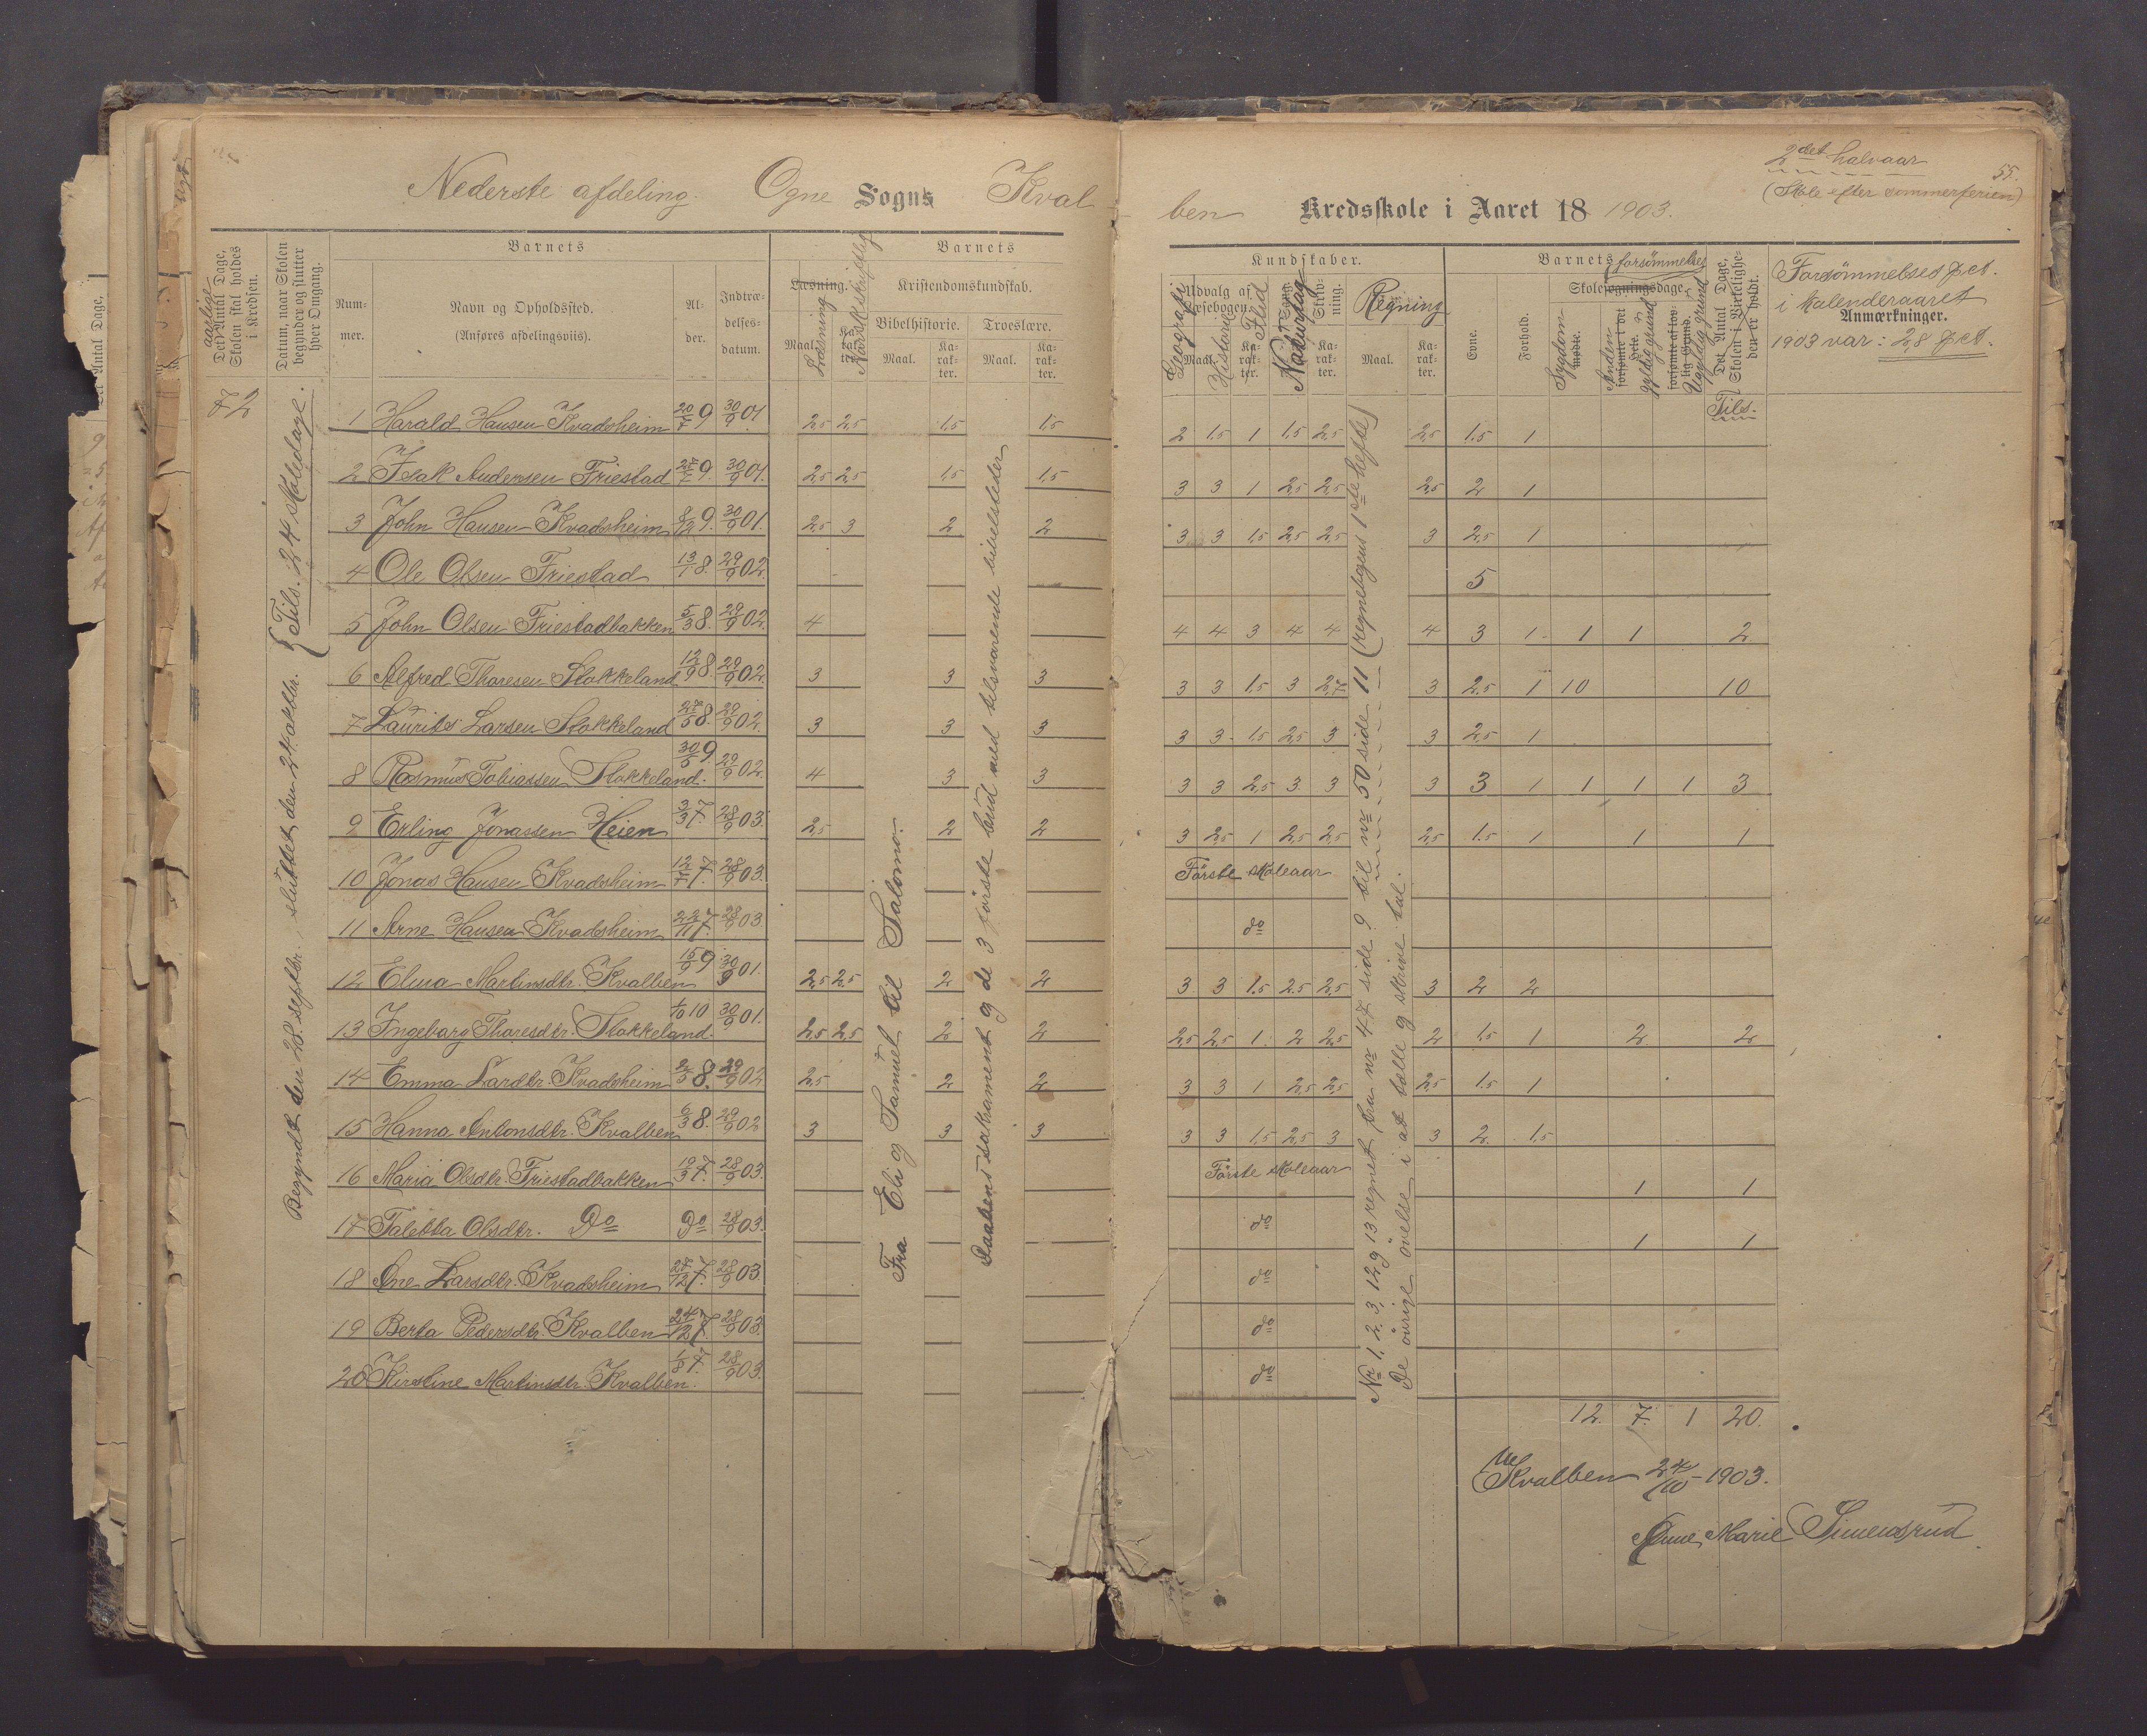 Nederste afdeling. Ogne Sogns Kval-
ben Kredsskole i Aaret 18 1903.
2det halvaar
(Skole efter sommerferien)
55.
aarlige
Det Antal Dage, Skolen skal holdes i Kredsen.
Datum, naar Skolen begynder og slutter hver Omgang.
Barnets
Num-
mer.
Navn og Opholdssted.
(Anføres afdelingsviis).
Al-
der.
Indtræ-
delses-
datum.
Barnets
Læsning.
Læsning
Norsk skriftlig
Maal.
Ka-
rak-
ter.
Kristendomskundskab.
Bibelhistorie.
Troeslære.
Maal.
Ka-
rak-
ter.
Maal.
Ka-
rak-
ter.
Kundskaber.
Udvalg af
Læsebogen.
Geografi
Historie
Flid
Naturfag
Skriv-
ning.
Regning
Maal.
Ka-
rak-
ter.
Barnets forsømmelser
Evne.
Forhold.
Skolesøgningsdage.
Sygdom
Anden gyldig grund
Ugyldig grund
Det Antal Dage, Skolen i Virkeligheden er holdt.
Tils.
Forsømmelses pct.
i kalenderaaret
Anmærkninger.
1903 var: 2,8 pct.
72
Begyndt den 28. septbr., sluttet den 24. oktbr. {Tils. 24 skoledage.
1 Harald Hansen Kvadsheim 20/7 9 30/9 01 2,5 2,5 1,5 1,5 2 1,5 1 1,5 2,5 2,5 1,5 1
2 Isak Andersen Friestad 27/7 9. 30/9 01. 2,5 2,5 1,5 1,5 3 3 1 2,5 2,5 2,5 2 1
3 John Hansen Kvadsheim 8/12 9. 30/9 01. 2,5 3 2 2 3 3 1,5 2,5 2,5 3 2,5 1
4 Ole Olsen Friestad 13/1 8. 29/9 02. 5
5 John Olsen Friestadbakken 5/3 8. 29/9 02. 4 4 4 3 4 4 4 3 1 1 1 2
6 Alfred Thoresen Stokkeland 12/9 8. 29/9 02. 3 3 3 3 3 1,5 3 2,5 3 2,5 1 10 10
7 Laurits Larsen Stokkeland 29/5 8. 29/9 02. 3 3 3 3 3 1,5 2,5 3 3 2,5 1
8 Rasmus Tobiassen Stokkeland. 30/5 9 29/9 02. 4 3 3 3 3 2,5 3 3 3 3 1 1 1 1 3
9 Erling Jonassen Heien 3/3 7. 28/9 03. 2,5 2 2 3 2,5 1 2,5 2,5 2,5 1,5 1 1 1
10 Jonas Hansen Kvadsheim 12/7 7. 28/9 03. Første skoleaar
11 Arne Hansen Kvadsheim 22/11 7. 28/9 03. do
12 Elma Martinsdtr. Kvalben 15/9 9 30/9 01. 2,5 2,5 2 2 3 3 1,5 2,5 2,5 3 2 2
13 Ingeborg Thoresdtr. Stokkeland. 1/10 10 30/9 01. 2,5 2,5 2 2 2,5 2,5 1 2 2,5 2 1,5 1 2 2
14 Emma Larsdtr. Kvadsheim 2/5 8. 29/9 02 2,5 2 2 3 3 1 2,5 2,5 2,5 1,5 1
15 Hanna Antonsdtr. Kvalben 6/3 8. 29/9 02 3 3 3 3 3 1,5 2,5 3 3 2 1,5
16 Maria Olsdtr. Friestadbakken 19/3 7. 28/9 03. Første skoleaar 1 1
17 Taletta Olsdtr. Do Do 28/9 03. do 1 1
18 Ane Larsdtr. Kvadsheim 27/12 7. 28/9 03. do
19 Berta Pedersdtr. Kvalben 24/12 7. 28/9 03. do
20 Kirstine Martinsdtr. Kvalben. 1/8 7. 28/9 03. do
Fra Eli og Samuel til Salomo.
Daabens sakrament og de 3 første bud med tilsvarende bibelsteder
Nr 1, 2, 3, 12 og 13 regnet fra nr 47 side 9 til nr 50 side 11 (regnebogens 1ste hefte)
De øvrige øvelse i at tælle og skrive tal.
12. 7. 1 20.
Kvalben 24/10-1903.
Anne Marie Simensrud